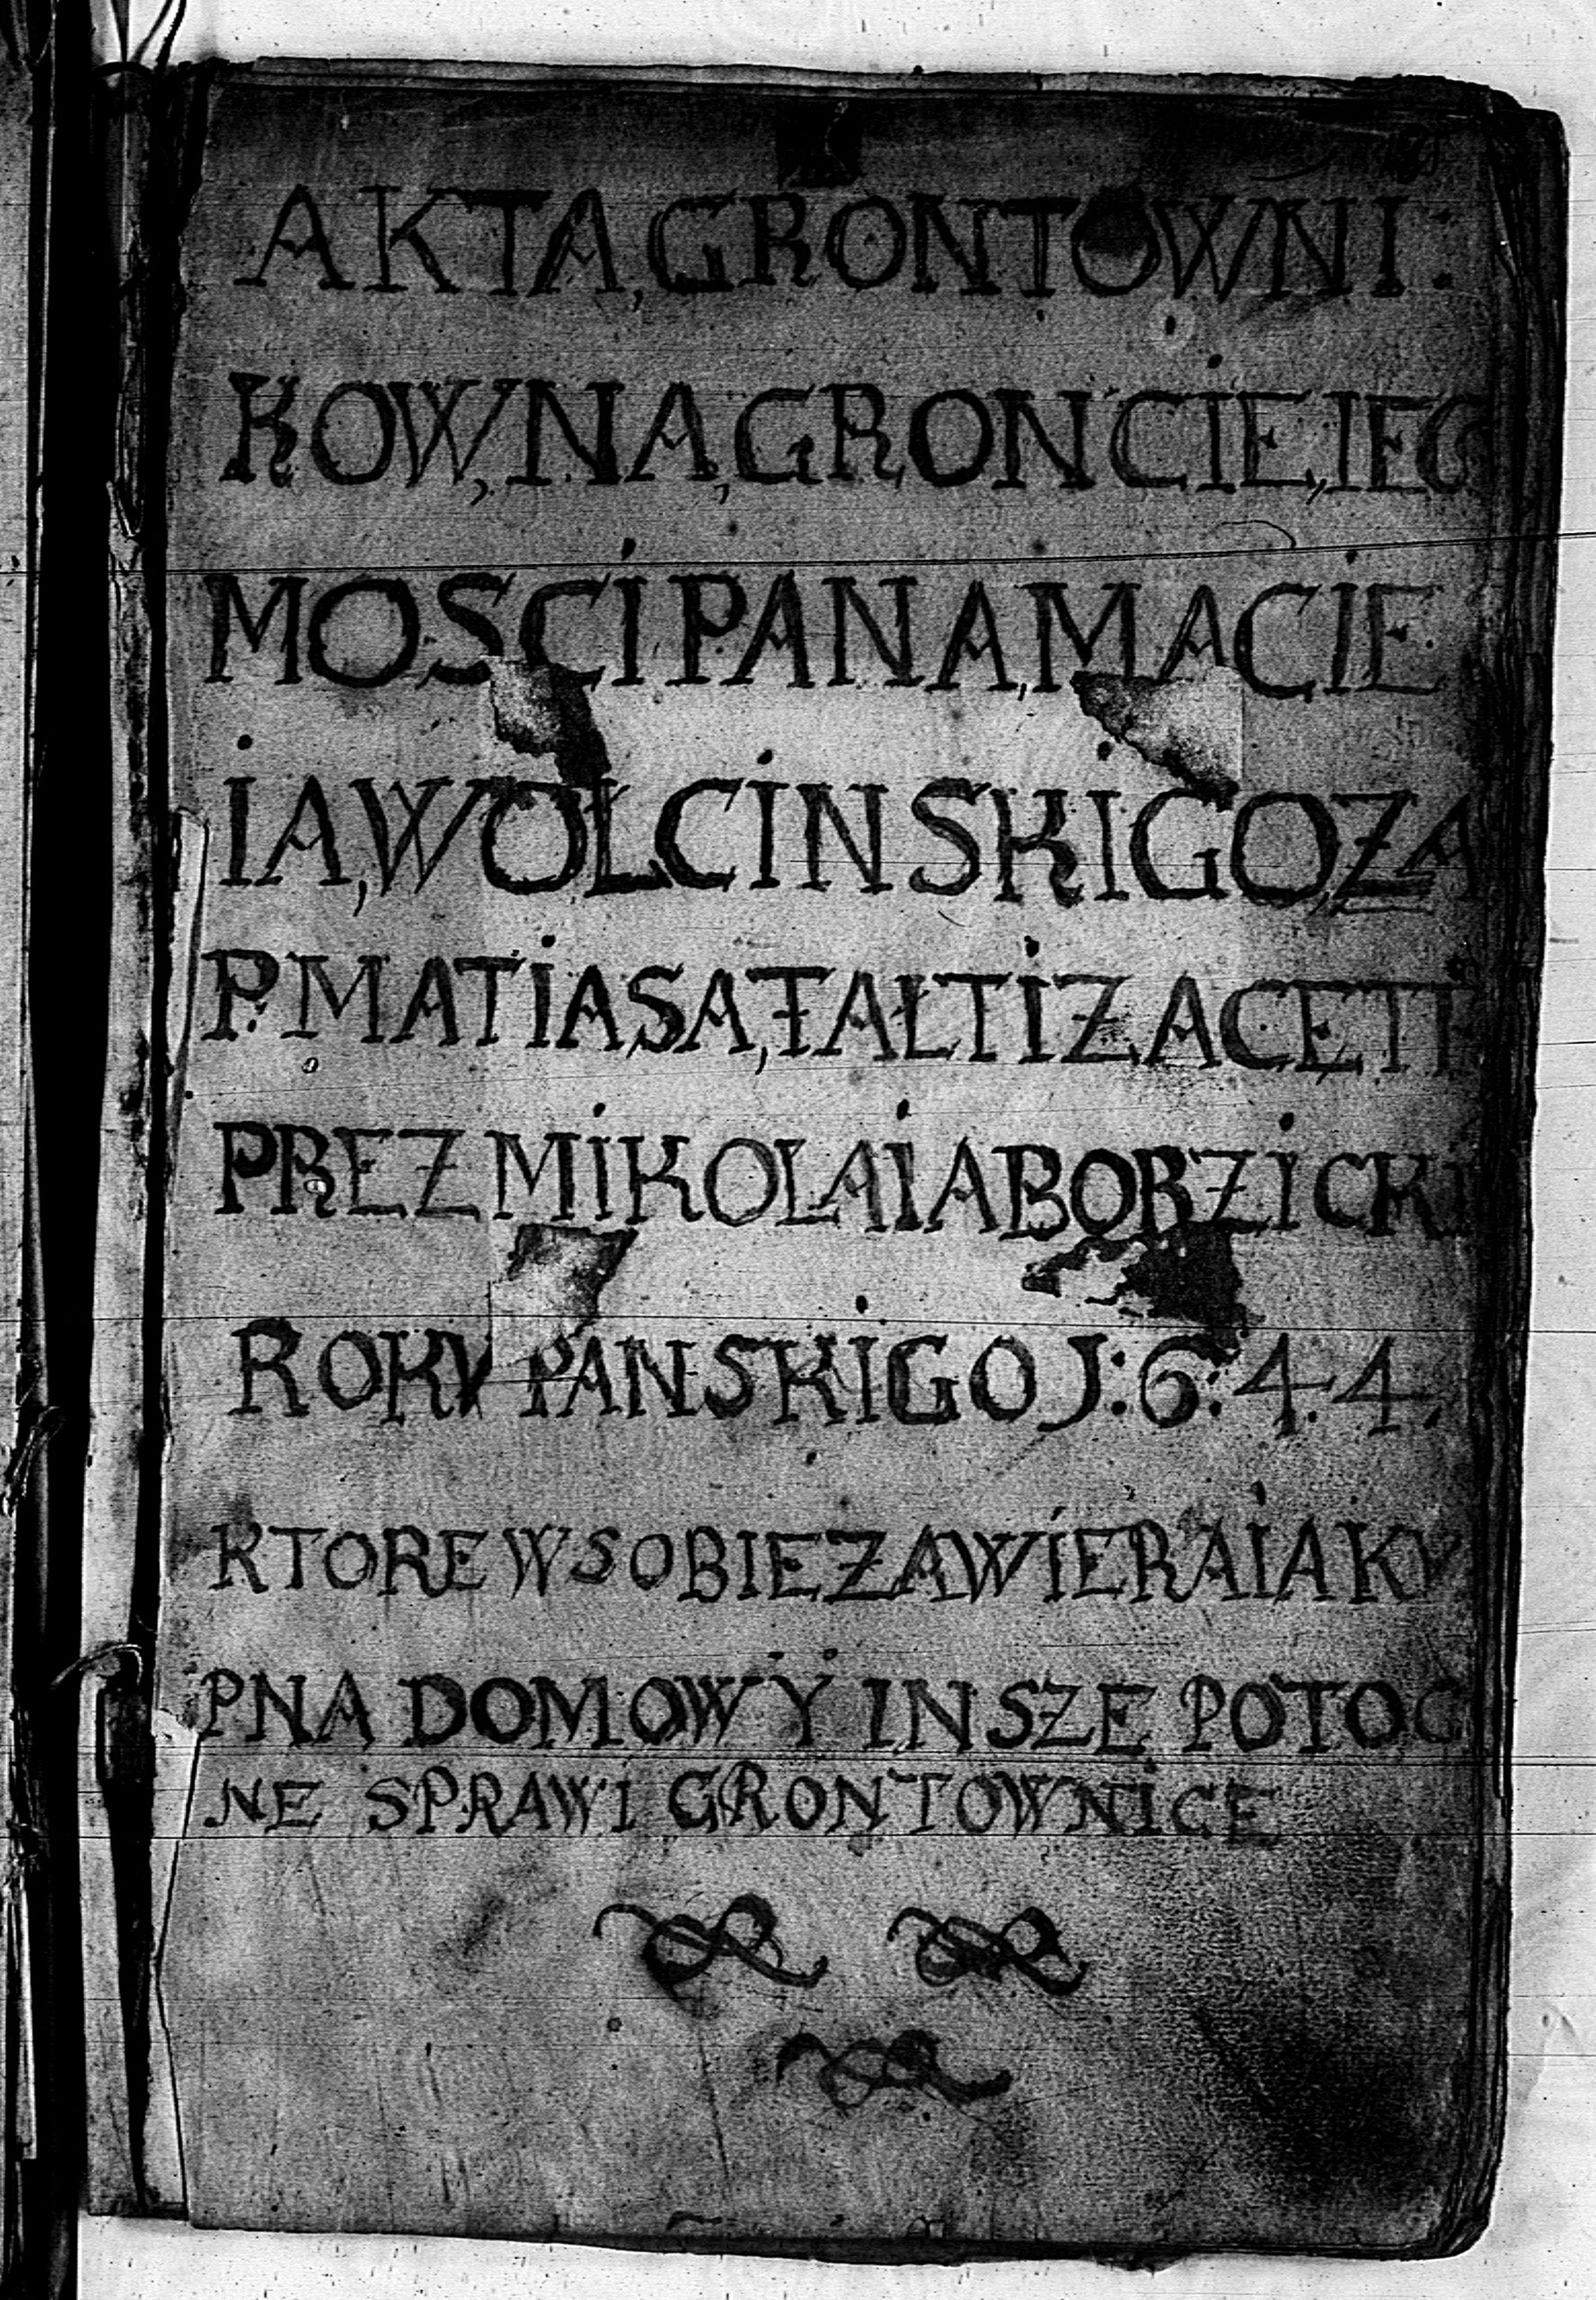 AKTA,GRONTOWNI:
KOW,NA,GRONCIE,IEG
MOSCI PANA,MACIE
IA,WOŁCINSKIGO,ZA
P:MATIASA,FAŁTIZACETI
PREZ MIKOŁAIA BORZICKI
ROKV PANSKIGO J:6:4.4.
KTORE W SOBIE ZAWIERAIA KV
PNA DOMOW Y INSZE POTOC
NE SPRAWI GRONTOWNICE